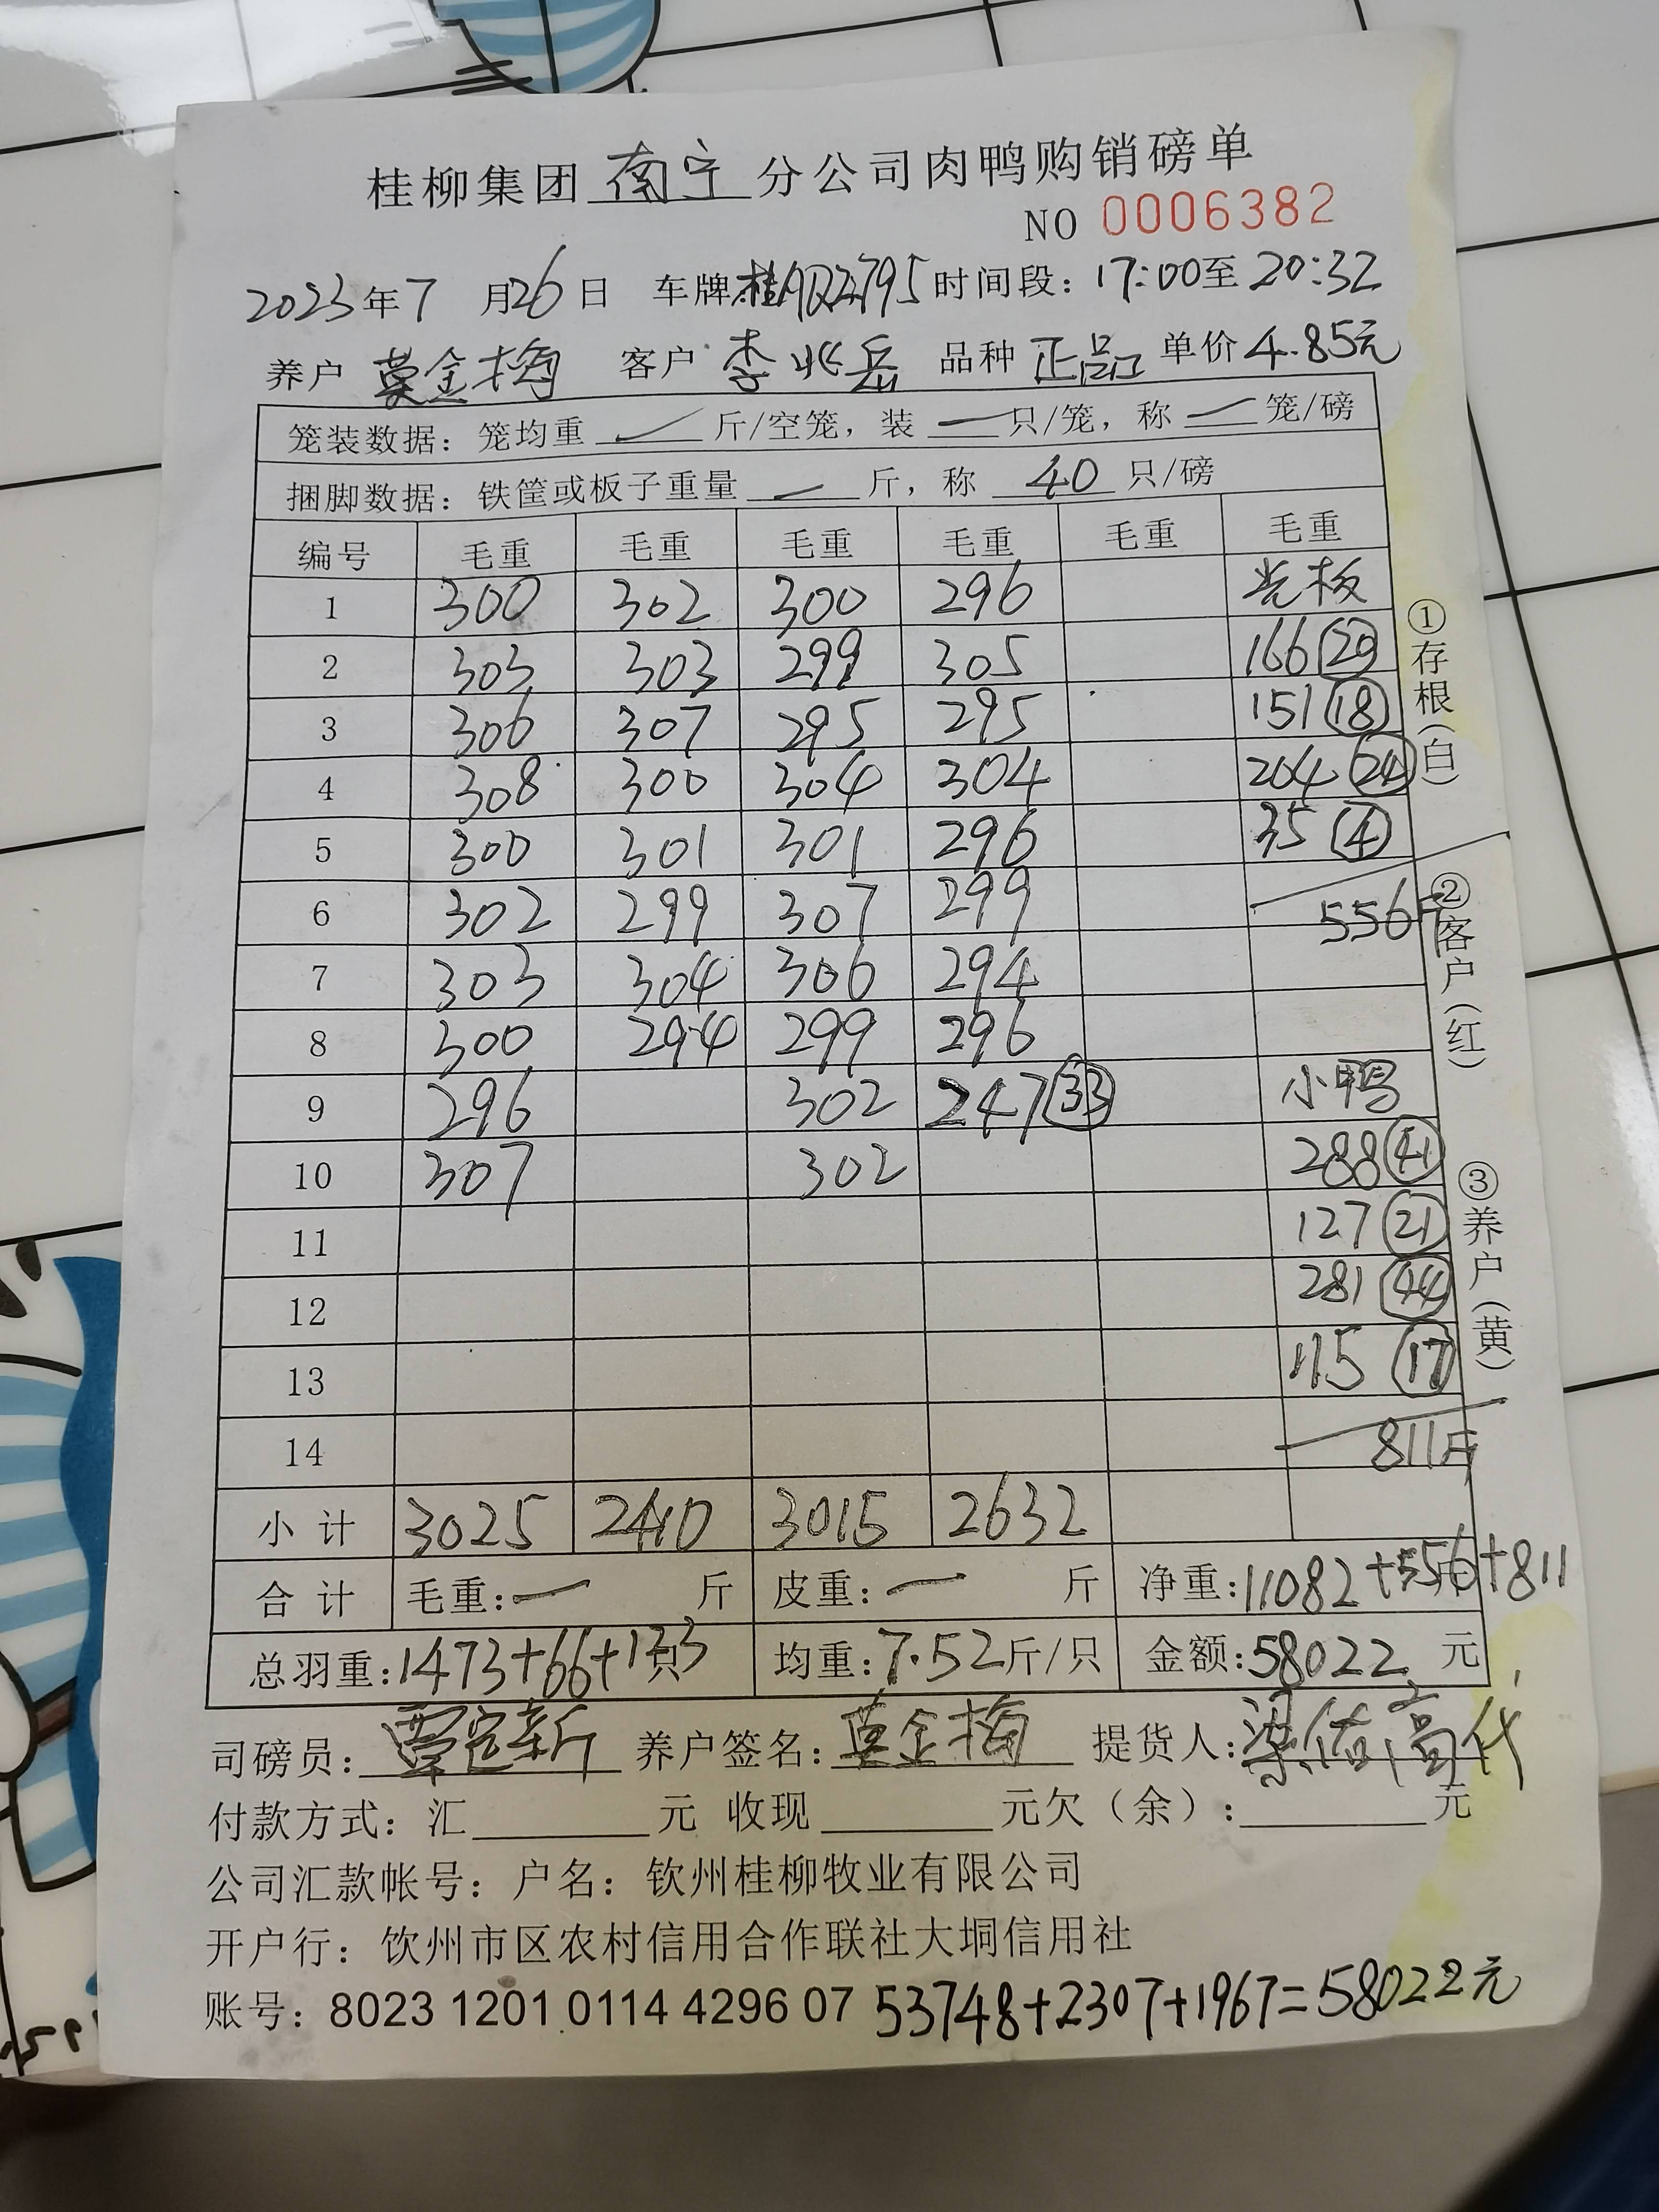 桂柳集团南宁分公司肉鸭购销磅单
NO 0006382
2023年7月26日 车牌: 时间段：17:00至20:32
养户 莫金梅 客户 李兆岳 品种 正品 单价 4.85元
笼装数据：笼均重 — 斤/空笼，装 — 只/笼，称 — 笼/磅
捆脚数据：铁筐或板子重量 — 斤，称 40 只/磅
编号 毛重 毛重 毛重 毛重 毛重 毛重
1 300 302 300 296 光板
2 303 303 299 305 166 (20)
3 306 307 295 295 151 (18)
4 308 300 304 304 204 (24)
5 300 301 301 296 35 (4)
6 302 299 307 299 556斤
7 303 304 306 294
8 300 294 299 296
9 296 302 247 (33) 小鸭
10 307 302 288 (41)
11 127 (21)
12 281 (44)
13 115 (17)
14 811斤
小计 3025 2410 3015 2632
合计 毛重：— 斤 皮重：— 斤 净重：11082+556+811
总羽重：1473+66+133只 均重：7.52斤/只 金额：58022元
司磅员： 养户签名：莫金梅 提货人：梁佑高代
付款方式：汇 元 收现 元欠（余）： 元
公司汇款帐号：户名：钦州桂柳牧业有限公司
开户行：钦州市区农村信用合作联社大垌信用社
账号：8023 1201 0114 4296 07 53748+2307+1967=58022元
①存根（白）
②客户（红）
③养户（黄）